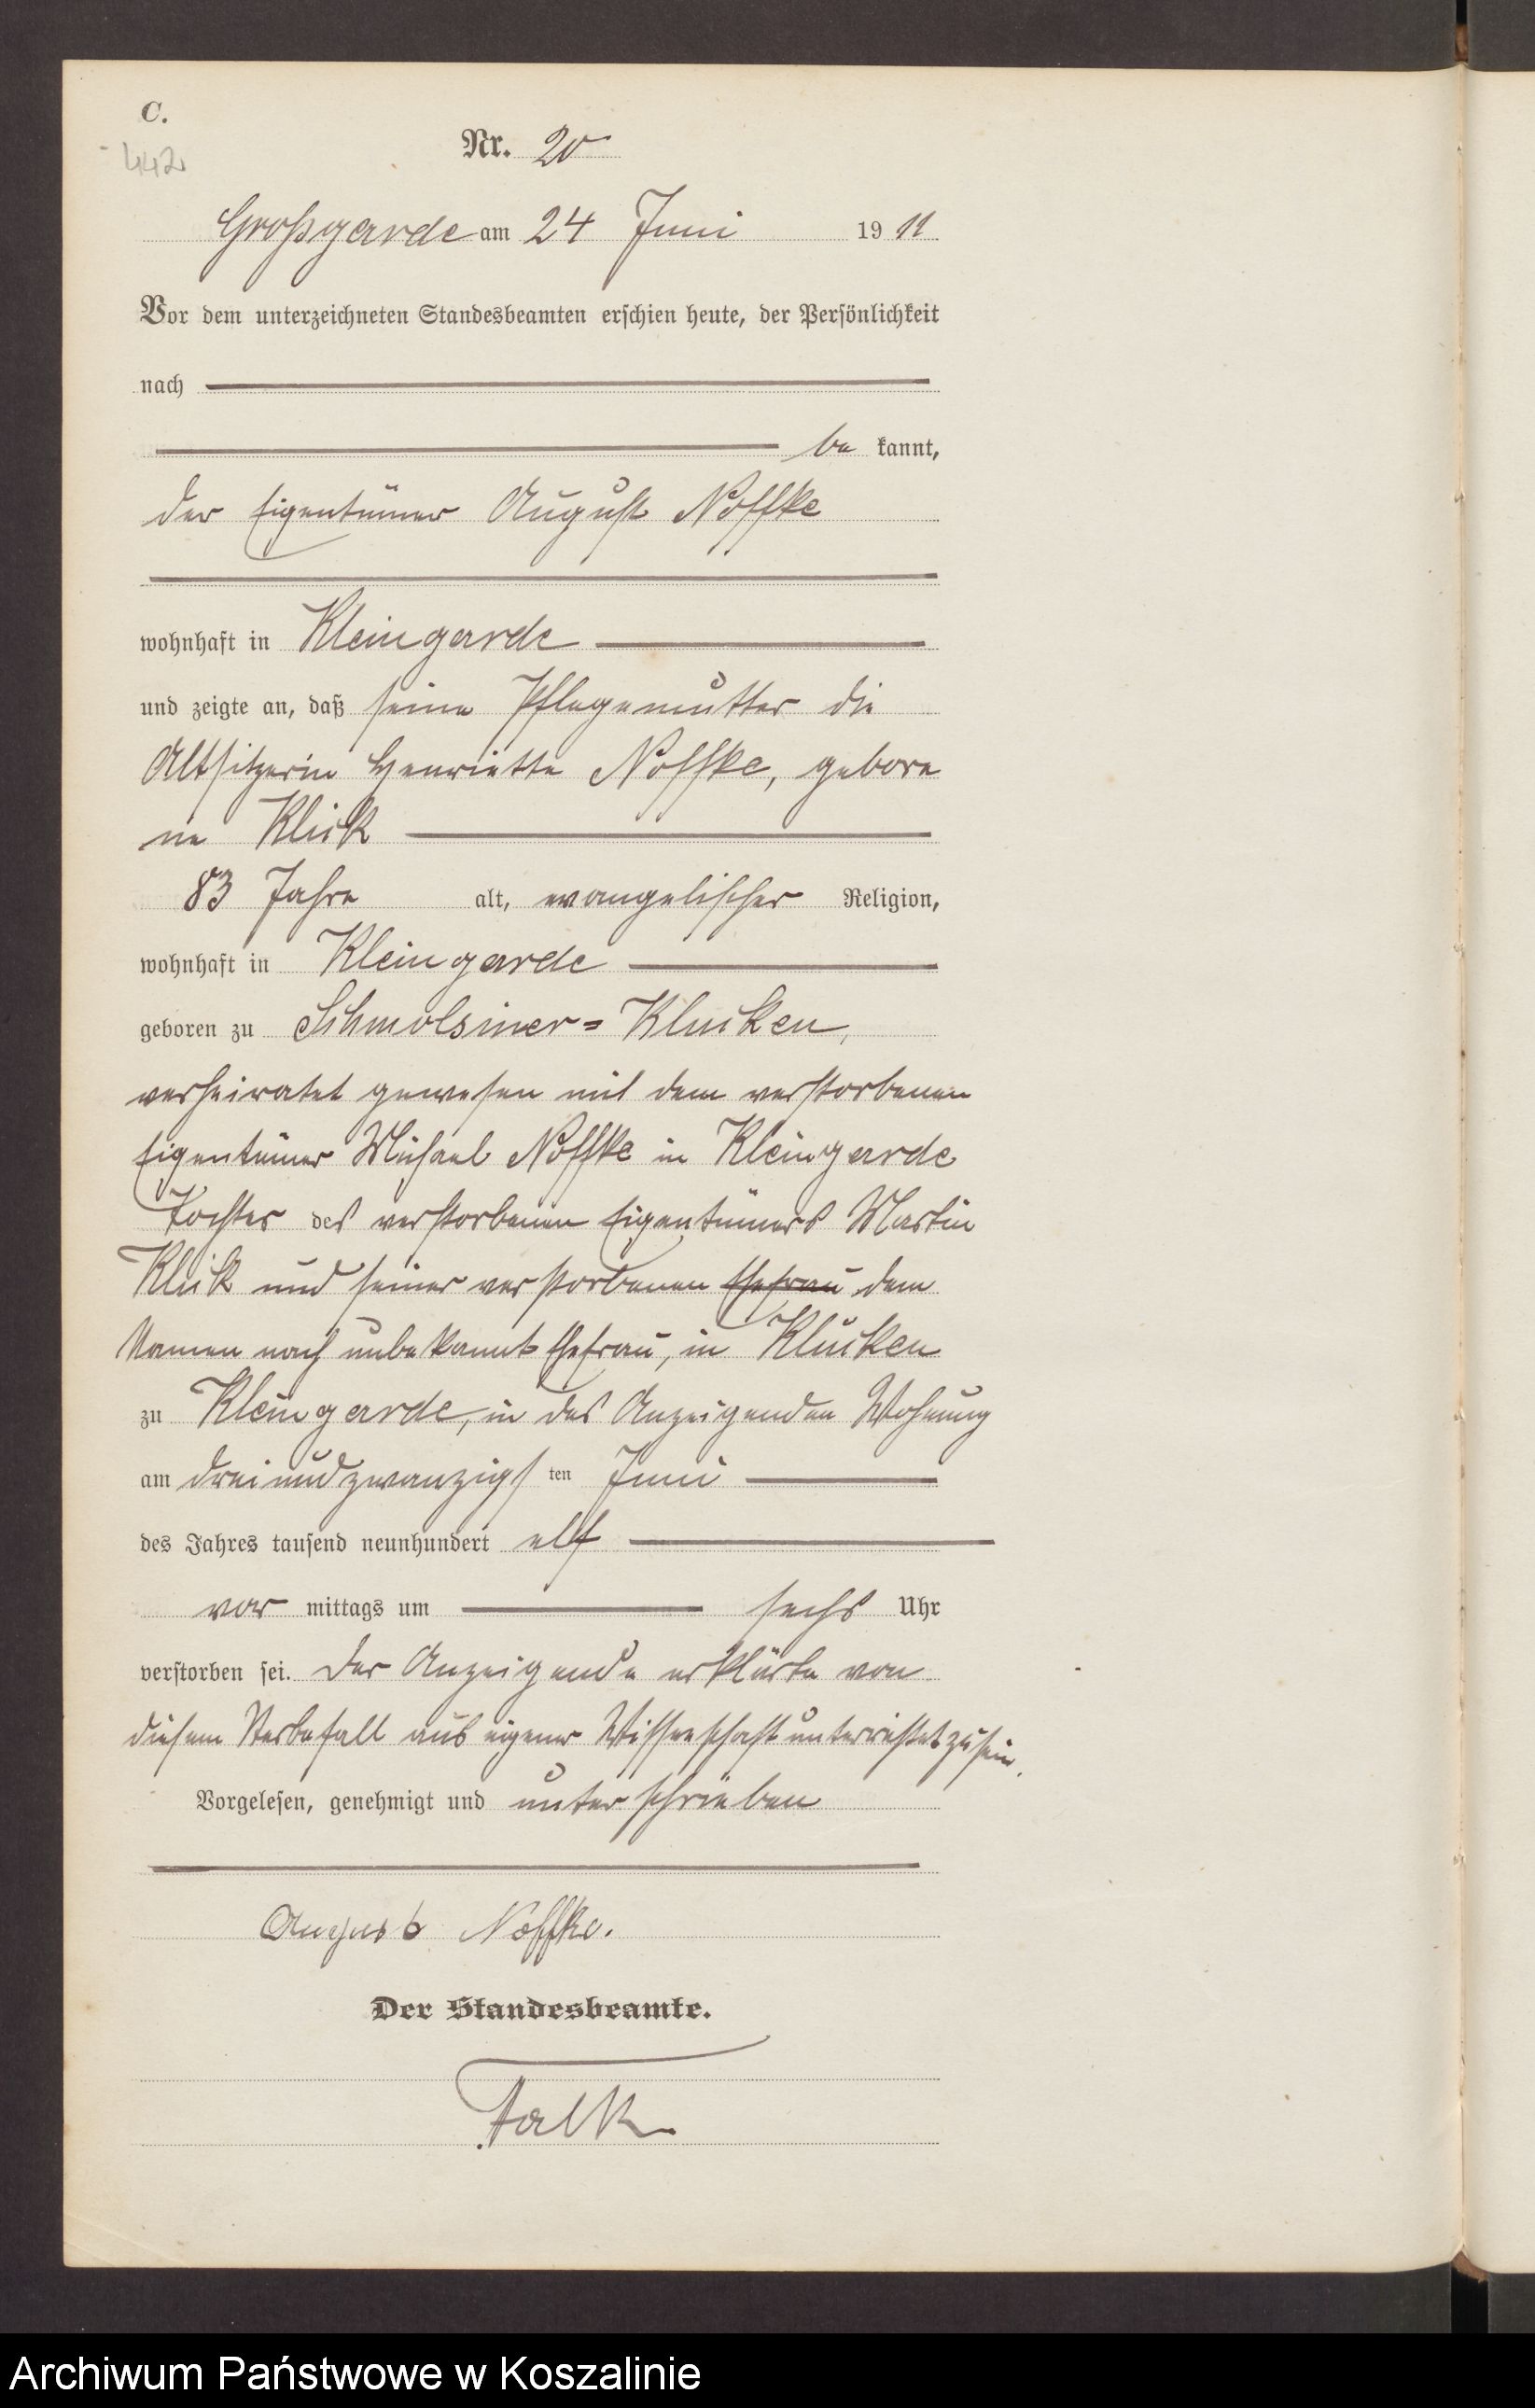 C.
442
Nr. 20
Großgarde am 24 Juni 1911
Vor dem unterzeichneten Standesbeamten erschien heute, der Persönlichkeit
nach
be kannt,
der Eigentümer August Noffke
wohnhaft in Kleingarde
und zeigte an, daß seine Pflegemutter die
Altsitzerin Henriette Noffke, gebore
ne Klick
83 Jahre alt, evangelischer Religion,
wohnhaft in Kleingarde
geboren zu Schmolsiner=Klucken,
verheiratet gewesen mit dem verstorbenen
Eigentümer Michael Noffke in Kleingarde
Tochter des verstorbenen Eigentümers Martin
Klick und seiner verstorbenen Ehefrau dem
Namen nach unbekannt Ehefrau, in Klucken
zu Kleingarde, in des Anzeigenden Wohnung
am dreiundzwanzigsten Juni
des Jahres tausend neunhundert elf
vor mittags um sechs Uhr
verstorben sei. Der Anzeigende erklärte von
diesem Sterbefall aus eigener Wissenschaft unterrichtet zu sein.
Vorgelesen, genehmigt und unterschrieben
August Noffke.
Der Standesbeamte.
Falk
Archiwum Państwowe w Koszalinie